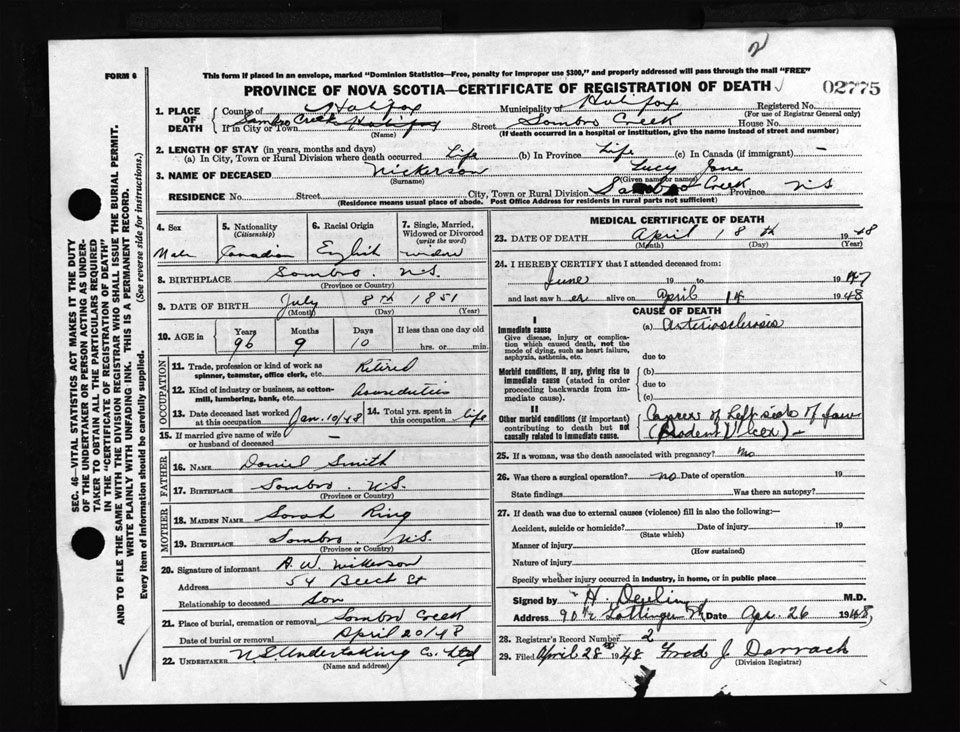 2
FORM 6
This form if placed in an envelope, marked "Dominion Statistics—Free, penalty for improper use $300," and properly addressed will pass through the mail "FREE"
PROVINCE OF NOVA SCOTIA—CERTIFICATE OF REGISTRATION OF DEATH 02775
1. PLACE OF DEATH County of Halifax Municipality of Halifax Registered No.
(For use of Registrar General only)
If in City or Town Sambro Creek Halifax (Name) Street Sambro Creek House No.
(If death occurred in a hospital or institution, give the name instead of street and number)
2. LENGTH OF STAY (in years, months and days)
(a) In City, Town or Rural Division where death occurred Life (b) In Province Life (c) In Canada (if immigrant) —
3. NAME OF DECEASED Nickerson (Surname) Lucy Jane (Given name or names)
RESIDENCE No. Street City, Town or Rural Division Sambro Creek Province N.S
(Residence means usual place of abode. Post Office Address for residents in rural parts not sufficient)
4. Sex Male
5. Nationality (Citizenship) Canadian
6. Racial Origin English
7. Single, Married, Widowed or Divorced (write the word) widow
8. BIRTHPLACE Sambro. N.S. (Province or County)
9. DATE OF BIRTH July 8th 1851 (Month) (Day) (Year)
10. AGE in Years 96 Months 9 Days 10 If less than one day old hrs. or min.
OCCUPATION
11. Trade, profession or kind of work as spinner, teamster, office clerk, etc. Retired
12. Kind of industry or business, as cotton-mill, lumbering, bank, etc.
13. Date deceased last worked at this occupation Jan. 10/48 14. Total yrs. spent in this occupation life
15. If married give name of wife or husband of deceased —
FATHER
16. NAME Daniel Smith
17. BIRTHPLACE Sambro. N.S. (Province or Country)
MOTHER
18. MAIDEN NAME Sarah Ring
19. BIRTHPLACE Sambro. N.S. (Province or Country)
20. Signature of informant A.W. Nickerson
Address 54 Beech St
Relationship to deceased son
21. Place of burial, cremation or removal Sambro Creek
Date of burial or removal April 20/48
22. UNDERTAKER N.S. Undertaking Co. Ltd
(Name and address)
MEDICAL CERTIFICATE OF DEATH
23. DATE OF DEATH April 18th 1948
(Month) (Day) (Year)
24. I HEREBY CERTIFY that I attended deceased from:
June 19 to 1947
and last saw her alive on April 14 1948
CAUSE OF DEATH
I
Immediate cause (a) Arteriosclerosis
Give disease, injury or complication which caused death, not the mode of dying, such as heart failure, asphyxia, asthenia, etc. due to
Morbid conditions, if any, giving rise to immediate cause (stated in order proceeding backwards from immediate cause). (b) due to (c)
II
Other morbid conditions (if important) contributing to death but not causally related to immediate cause. Cancer of left side of face (Rodent Ulcer) —
25. If a woman, was the death associated with pregnancy? No
26. Was there a surgical operation? no Date of operation 19
State findings Was there an autopsy?
27. If death was due to external causes (violence) fill in also the following:—
Accident, suicide or homicide? Date of injury 19
(State which)
Manner of injury
(How sustained)
Nature of injury
Specify whether injury occurred in industry, in home, or in public place
Signed by H. Devlin M.D.
Address 90 1/2 Gottingen St Date Apr. 26 1948
28. Registrar's Record Number 2
29. Filed April 28th 1948 Fred J. Darrach
(Division Registrar)
SEC. 46—VITAL STATISTICS ACT MAKES IT THE DUTY OF THE UNDERTAKER OR PERSON ACTING AS UNDERTAKER TO OBTAIN ALL THE PARTICULARS REQUIRED IN THE "CERTIFICATE OF REGISTRATION OF DEATH"
AND TO FILE THE SAME WITH THE DIVISION REGISTRAR WHO SHALL ISSUE THE BURIAL PERMIT.
WRITE PLAINLY WITH UNFADING INK. THIS IS A PERMANENT RECORD.
Every item of information should be carefully supplied. (See reverse side for instructions.)